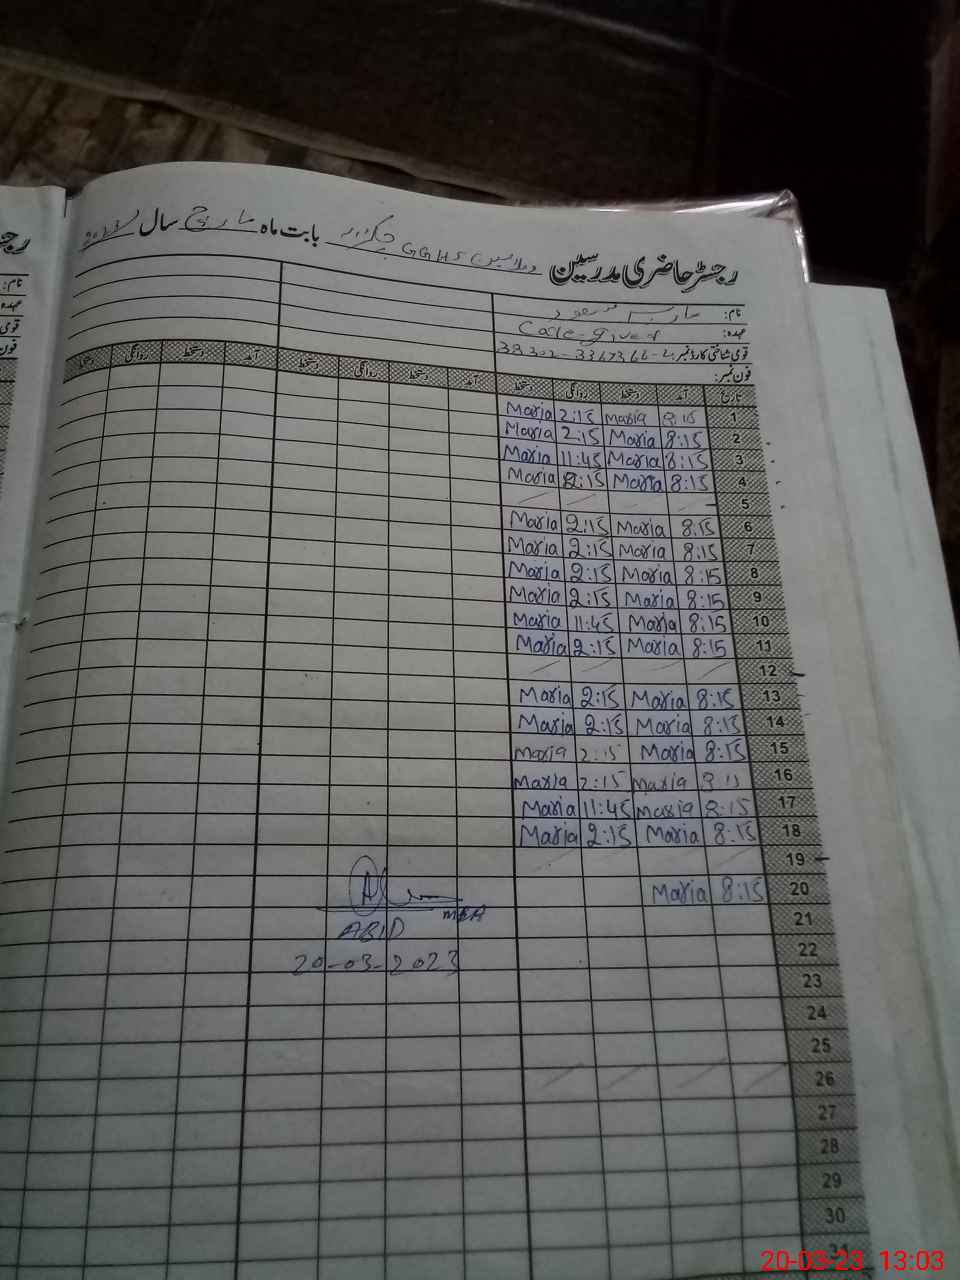 رجسٹر حاضری مدرسین GGHS بابت ماہ مارچ سال 2023
نام:
عہدہ: Care-giver
قومی شناختی کارڈ نمبر:
فون نمبر:
تاریخ آمد دستخط روانگی دستخط آمد دستخط روانگی دستخط آمد دستخط روانگی دستخط
1 8:15 Maria 2:15 Maria
2 8:15 Maria 2:15 Maria
3 8:15 Maria 11:45 Maria
4 8:15 Maria 2:15 Maria
5
6 8:15 Maria 2:15 Maria
7 8:15 Maria 2:15 Maria
8 8:15 Maria 2:15 Maria
9 8:15 Maria 2:15 Maria
10 8:15 Maria 11:45 Maria
11 8:15 Maria 2:15 Maria
12
13 8:15 Maria 2:15 Maria
14 8:15 Maria 2:15 Maria
15 8:15 Maria 2:15 Maria
16 8:15 Maria 2:15 Maria
17 8:15 Maria 11:45 Maria
18 8:15 Maria 2:15 Maria
19
20 8:15 Maria
21 MEA
ABID
22
20-03-2023
23
24
25
26
27
28
29
30
31
20-03-23 13:03